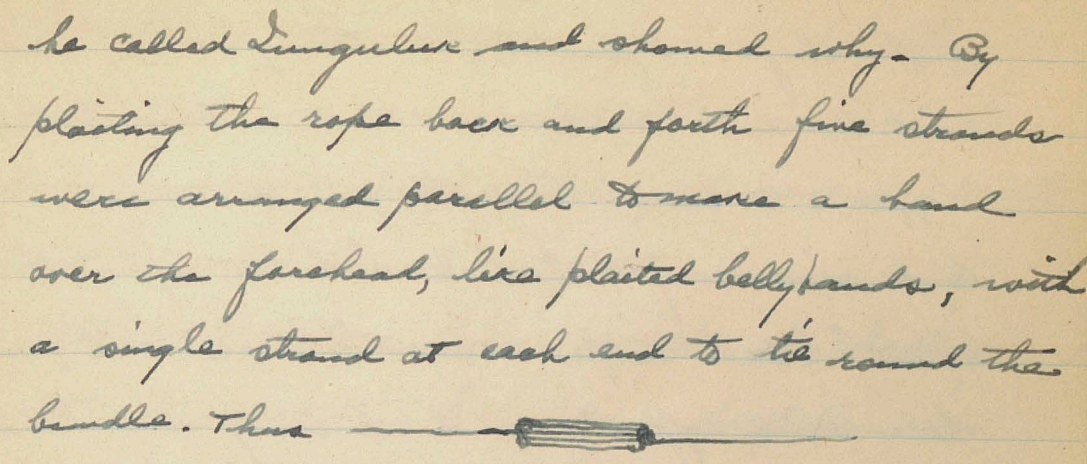 he called and showed why. By
plaiting the rope back and forth five strands
were arranged parallel to make a band
over the forehead, like plaited bellybands, with
a single strand at each end to tie round the
bundle. Thus